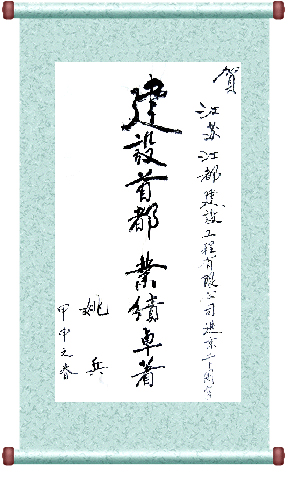 賀
江苏江都建设工程有限公司进京二十周年
建設首都 業績卓著
姚兵
甲申之春